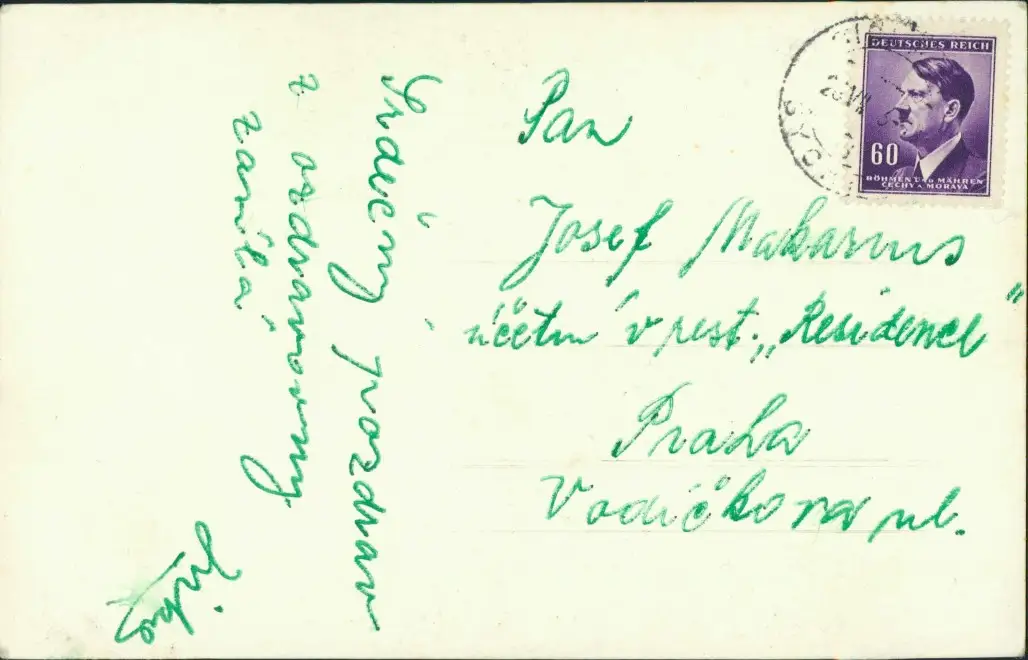 Srdečný pozdrav
z ozdravovny
zasílá
Pan
Josef Makarius
účetní v rest. „Residence"
Praha
Vodičkova ul.
DEUTSCHES REICH
60
BÖHMEN UND MÄHREN
ČECHY A MORAVA